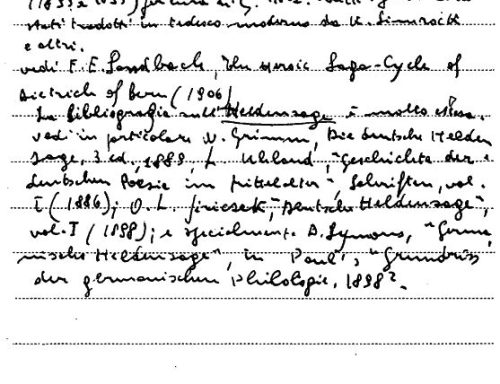 stati tradotti in tedesco moderno da K. Simrock
e altri.
vedi F. E. Sandbach, The Heroic Saga-Cycle of
Dietrich of Bern (1906)
La bibliografia sull'Heldensage è molto estesa.
vedi in particolare W. Grimm, Die deutsche Helden
sage, 3 ed., 1889, L. Uhland, "Geschichte der
deutschen Poesie im Mittelalter", Schriften, vol.
I (1886); O. L. Jiriczek, "Deutsche Heldensage",
vol. I (1898); e specialmente B. Symons, "Germa
nische Heldensage", in Paul's "Grundriss
der germanischen Philologie, 1898².